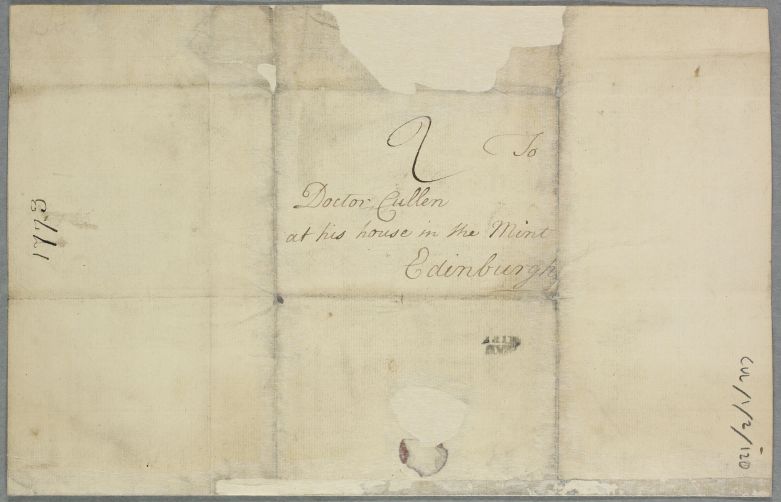 2
To
Doctor Cullen
at his house in the Mint
Edinburgh
1773
CUL/1/2/120